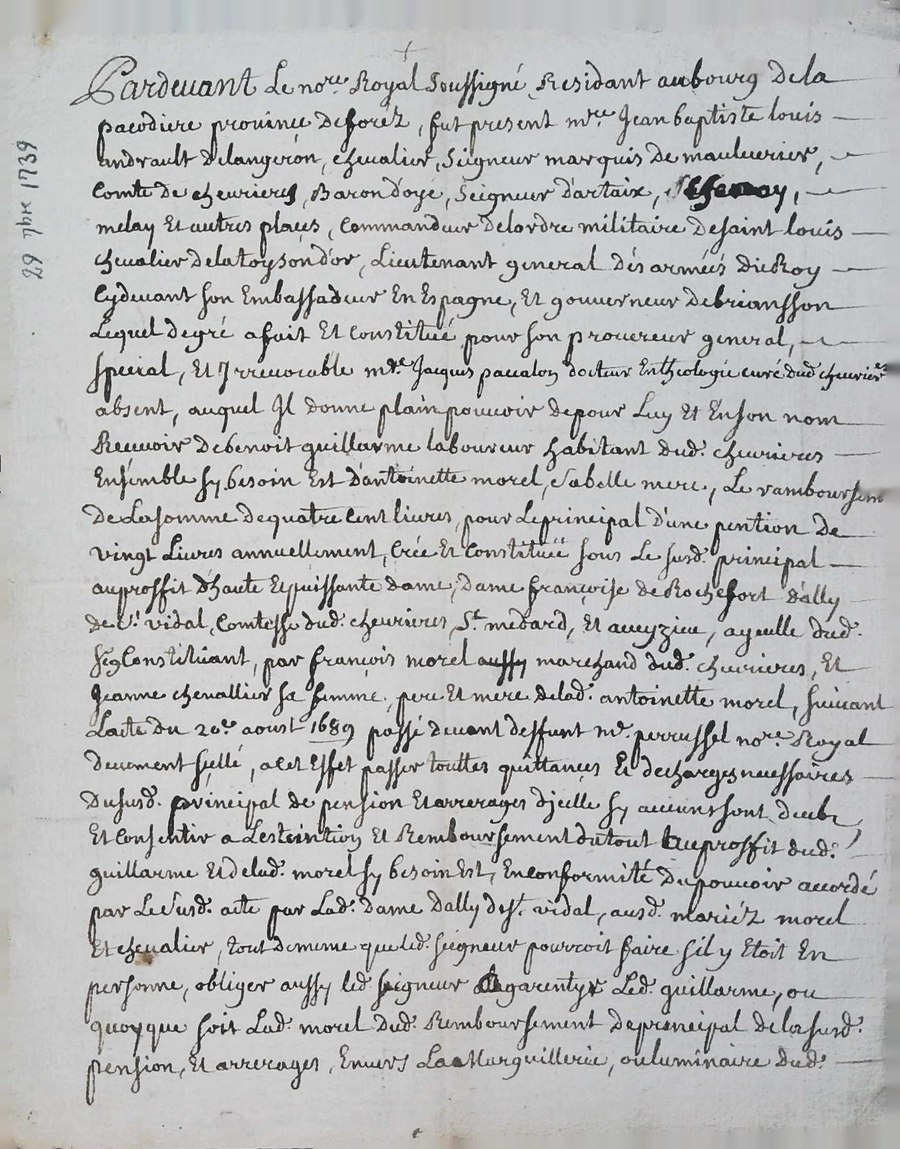 29 9bre 1739
Pardevant Le nore Royal Soussigné Residant au bourg de la
pacodiere province deforéz, fut present mre Jean baptiste louis
andrault delangeron, chevalier, Seigneur marquis de maulevrier,
Comte de chevrieres, Baron d'oyé, Seigneur d'artaix,
melay Et autres places, Commandeur delordre militaire desaint louis
chevalier delatoyson d'or, Lieutenant general des armées du Roy
Cydevant son Embassadeur En Espagne, Et gouverneur debriansson
Lequel degré a fait Et Constitué pour son procureur general,
special, Et Irrevocable mre Jacques pacalon docteur En theologie curé dud. chevrieres
absent, auquel Il donne plain pouvoir depour Luy Et En son nom
Recevoir debenoit guillarme laboureur habitant dud. chevrieres
Ensemble sy besoin Est d'antoinette morel, sabelle mere, Le ramboursem
de Lasomme dequatre Cent livres, pour Le principal d'une pention de
vingt Livres annuellement, Créé Et Constituée sous Le susd. principal
auproffit d'haute Et puissante dame, Dame françoise de Rochefort d'ally
de st. vidal, Comtesse dud. chevrieres, St. medard, Et aveyzieu, ayeulle dud.
sgr Constituant, par françois morel aussy marchand dud. chevrieres, Et
Jeanne chevallier sa femme, pere Et mere delad. antoinette morel, suivant
L'acte du 20e. aoust 1689 passé devant deffunt me. perrussel nore. Royal
deuement sellé, acet Effet passer touttes quittances Et decharges necessaires
Dususd. principal de pension Et arrerages d'jcelle sy aucuns sont deubs
Et Consentir a Lestcintion Et Remboursement dutout auproffit dud.
guillarme Et delad. morel sy besoin Est, En conformité Dupouvoir accordé
par Le susd. acte par Lad. Dame Dally de st. vidal, ausd. mariéz morel
Et chevalier, tout demême que led. seigneur pourroit faire s'il y Etoit En
personne, obliger aussy led. seigneur garentyr Led. guillarme, ou
quoyque soit Lad. morel dud. Remboursement deprincipal de la susd.
pension, Et arrerages, Envers La Marguillerie, ouluminaire dud.